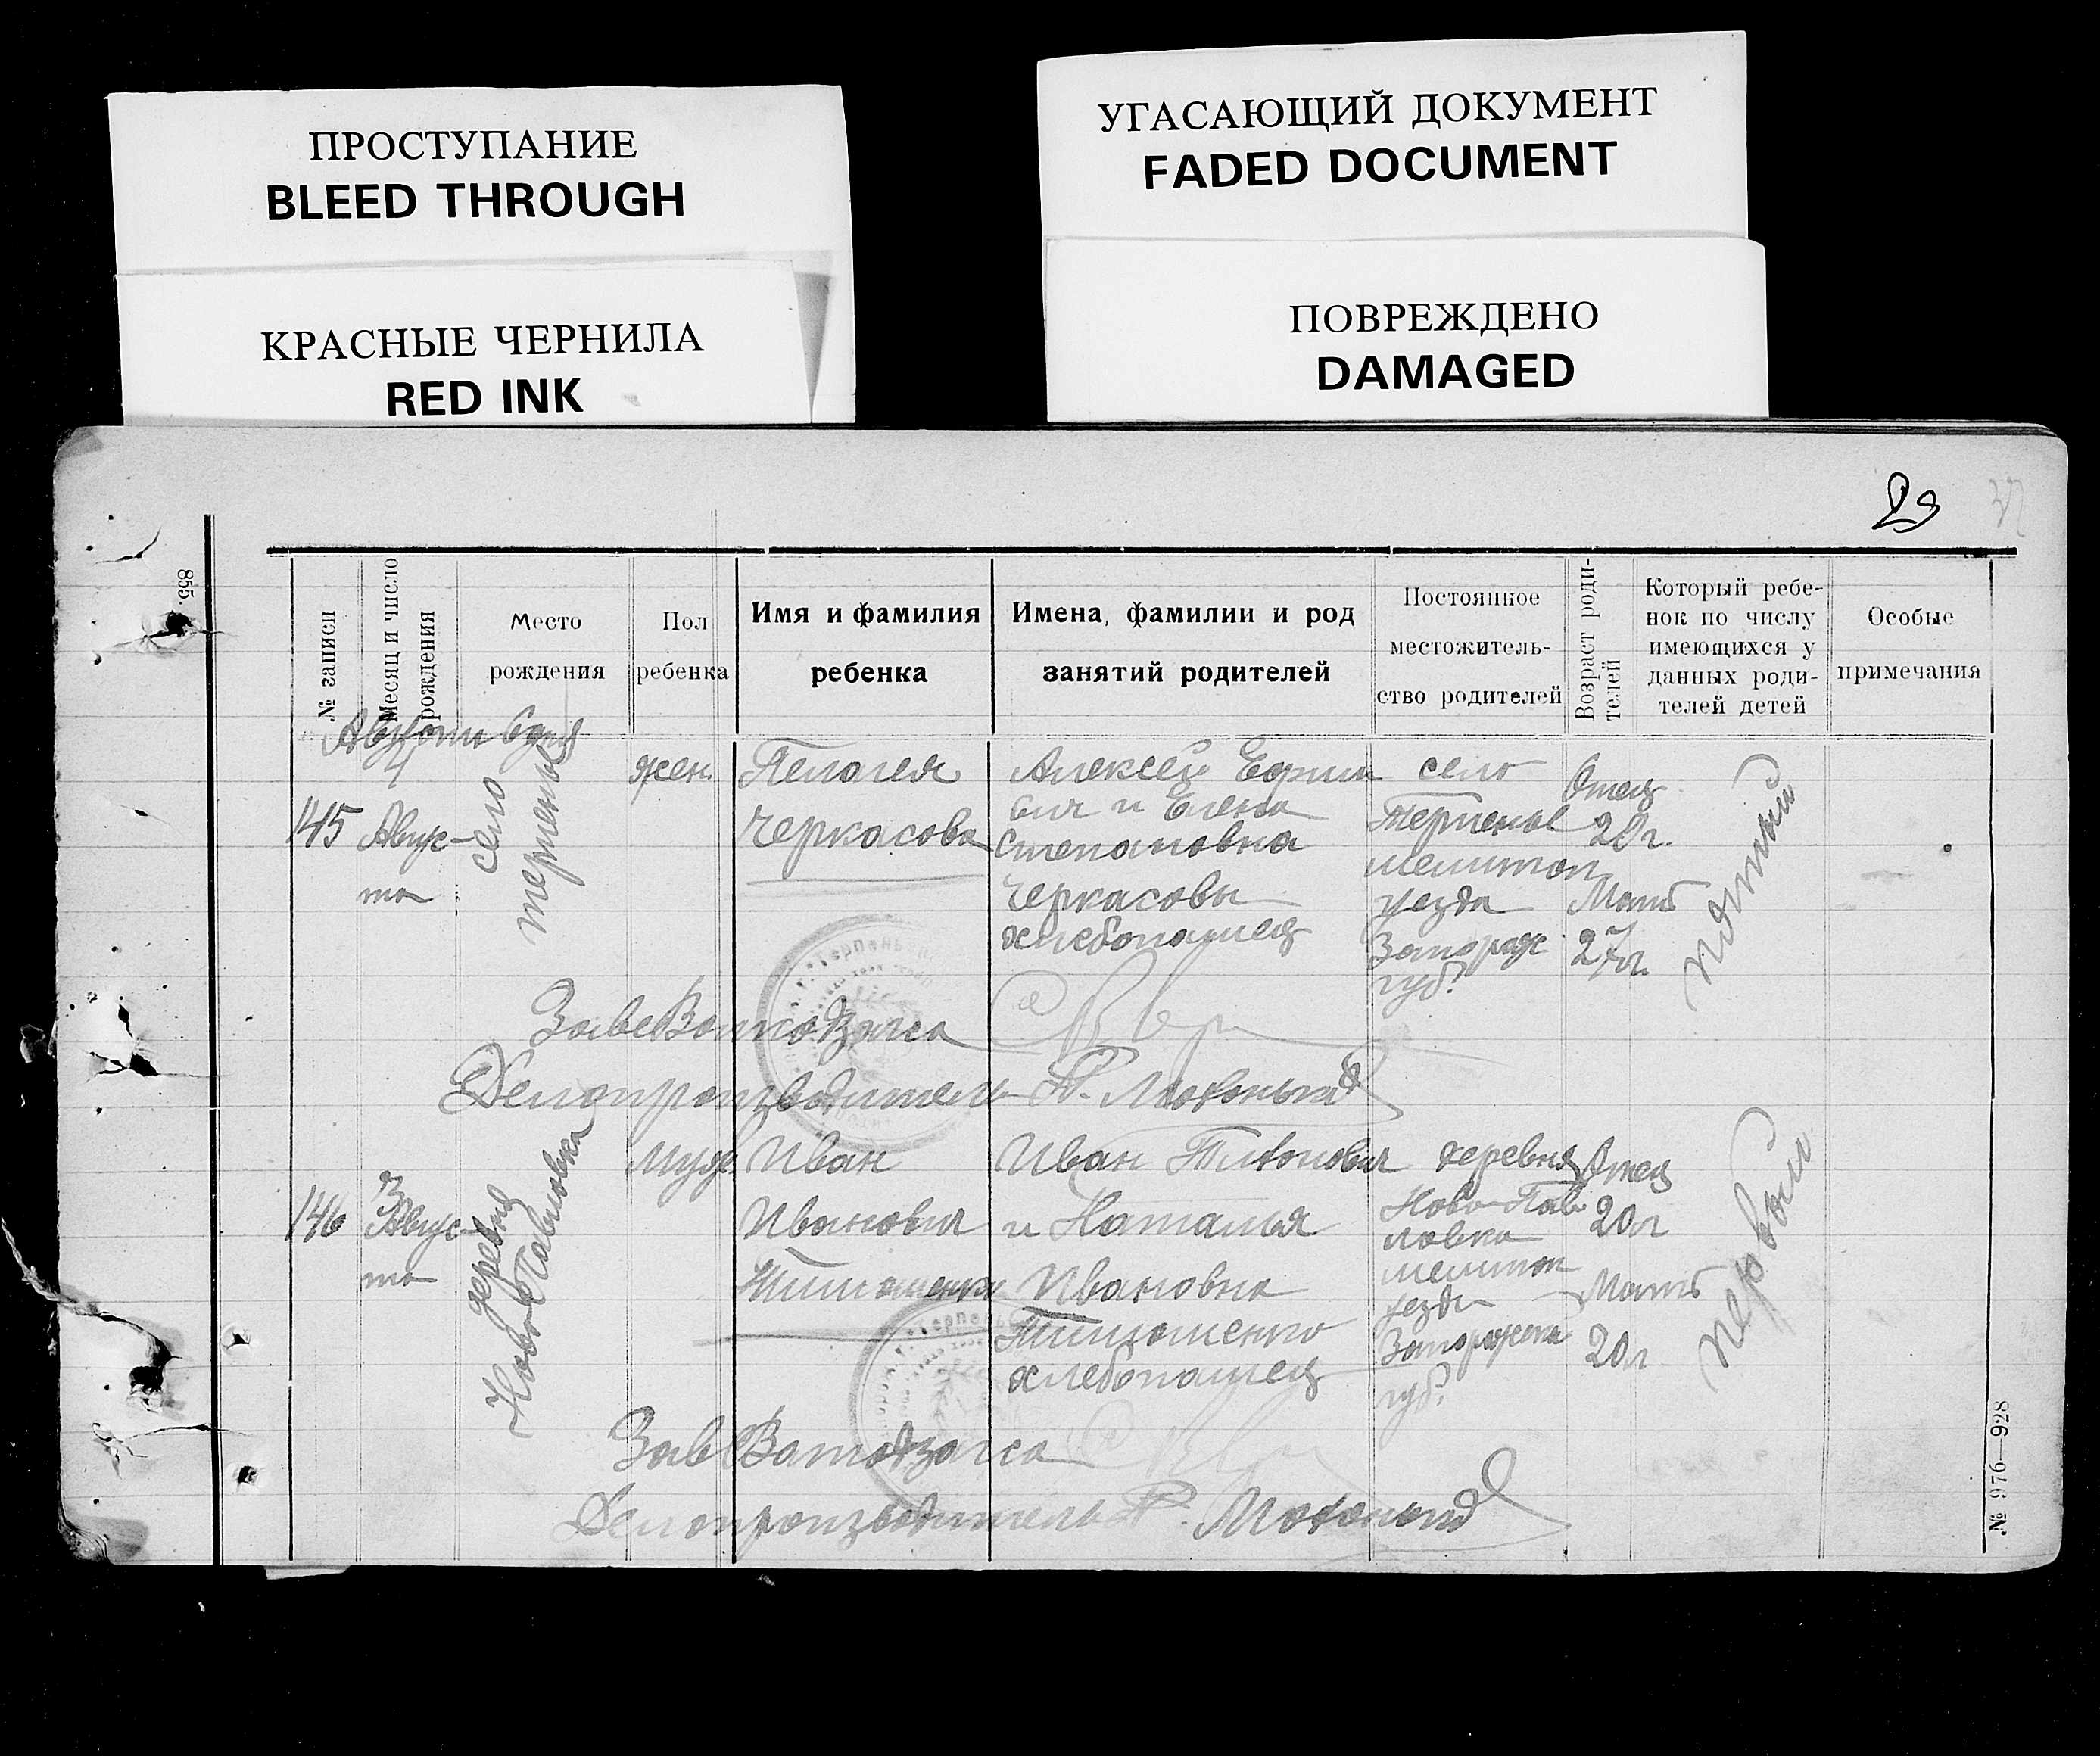 ПРОСТУПАНИЕ
BLEED THROUGH
КРАСНЫЕ ЧЕРНИЛА
RED INK
УГАСАЮЩИЙ ДОКУМЕНТ
FADED DOCUMENT
ПОВРЕЖДЕНО
DAMAGED
29
85.
№ записи
Месяц и число рождения
Место рождения
Пол ребенка
Имя и фамилия ребенка
Имена, фамилии и род занятий родителей
Постоянное местожитель-
ство родителей
Возраст роди-
телей
Который ребе-
нок по числу
имеющихся у
данных роди-
телей детей
Особые примечания
145
4
Авгус-
та
село
терпенье
жен.
Пелагея
Черкасова
Алексей Ефим
вич и Елена
Степановна
Черкасовы
хлебопашец
село
Терпенье
мелитоп
уезда
Запорож
губ.
Отец
28г.
Мать
27л
пятый
ЗавеВолподзагса
Делопроизводитель
146
3
Авгус-
та
деревня
Ново Павловка
муж
Иван
Иванович
Тимошенко
Иван Тихонович
и Наталья
Ивановна
Тимошенко
хлебопашец
деревня
Ново-Пав
ловка
мелитоп
уезда
Запорожск
губ.
Отец
20л
Мать
20л
первый
Делопроизводитель
№ 976—928